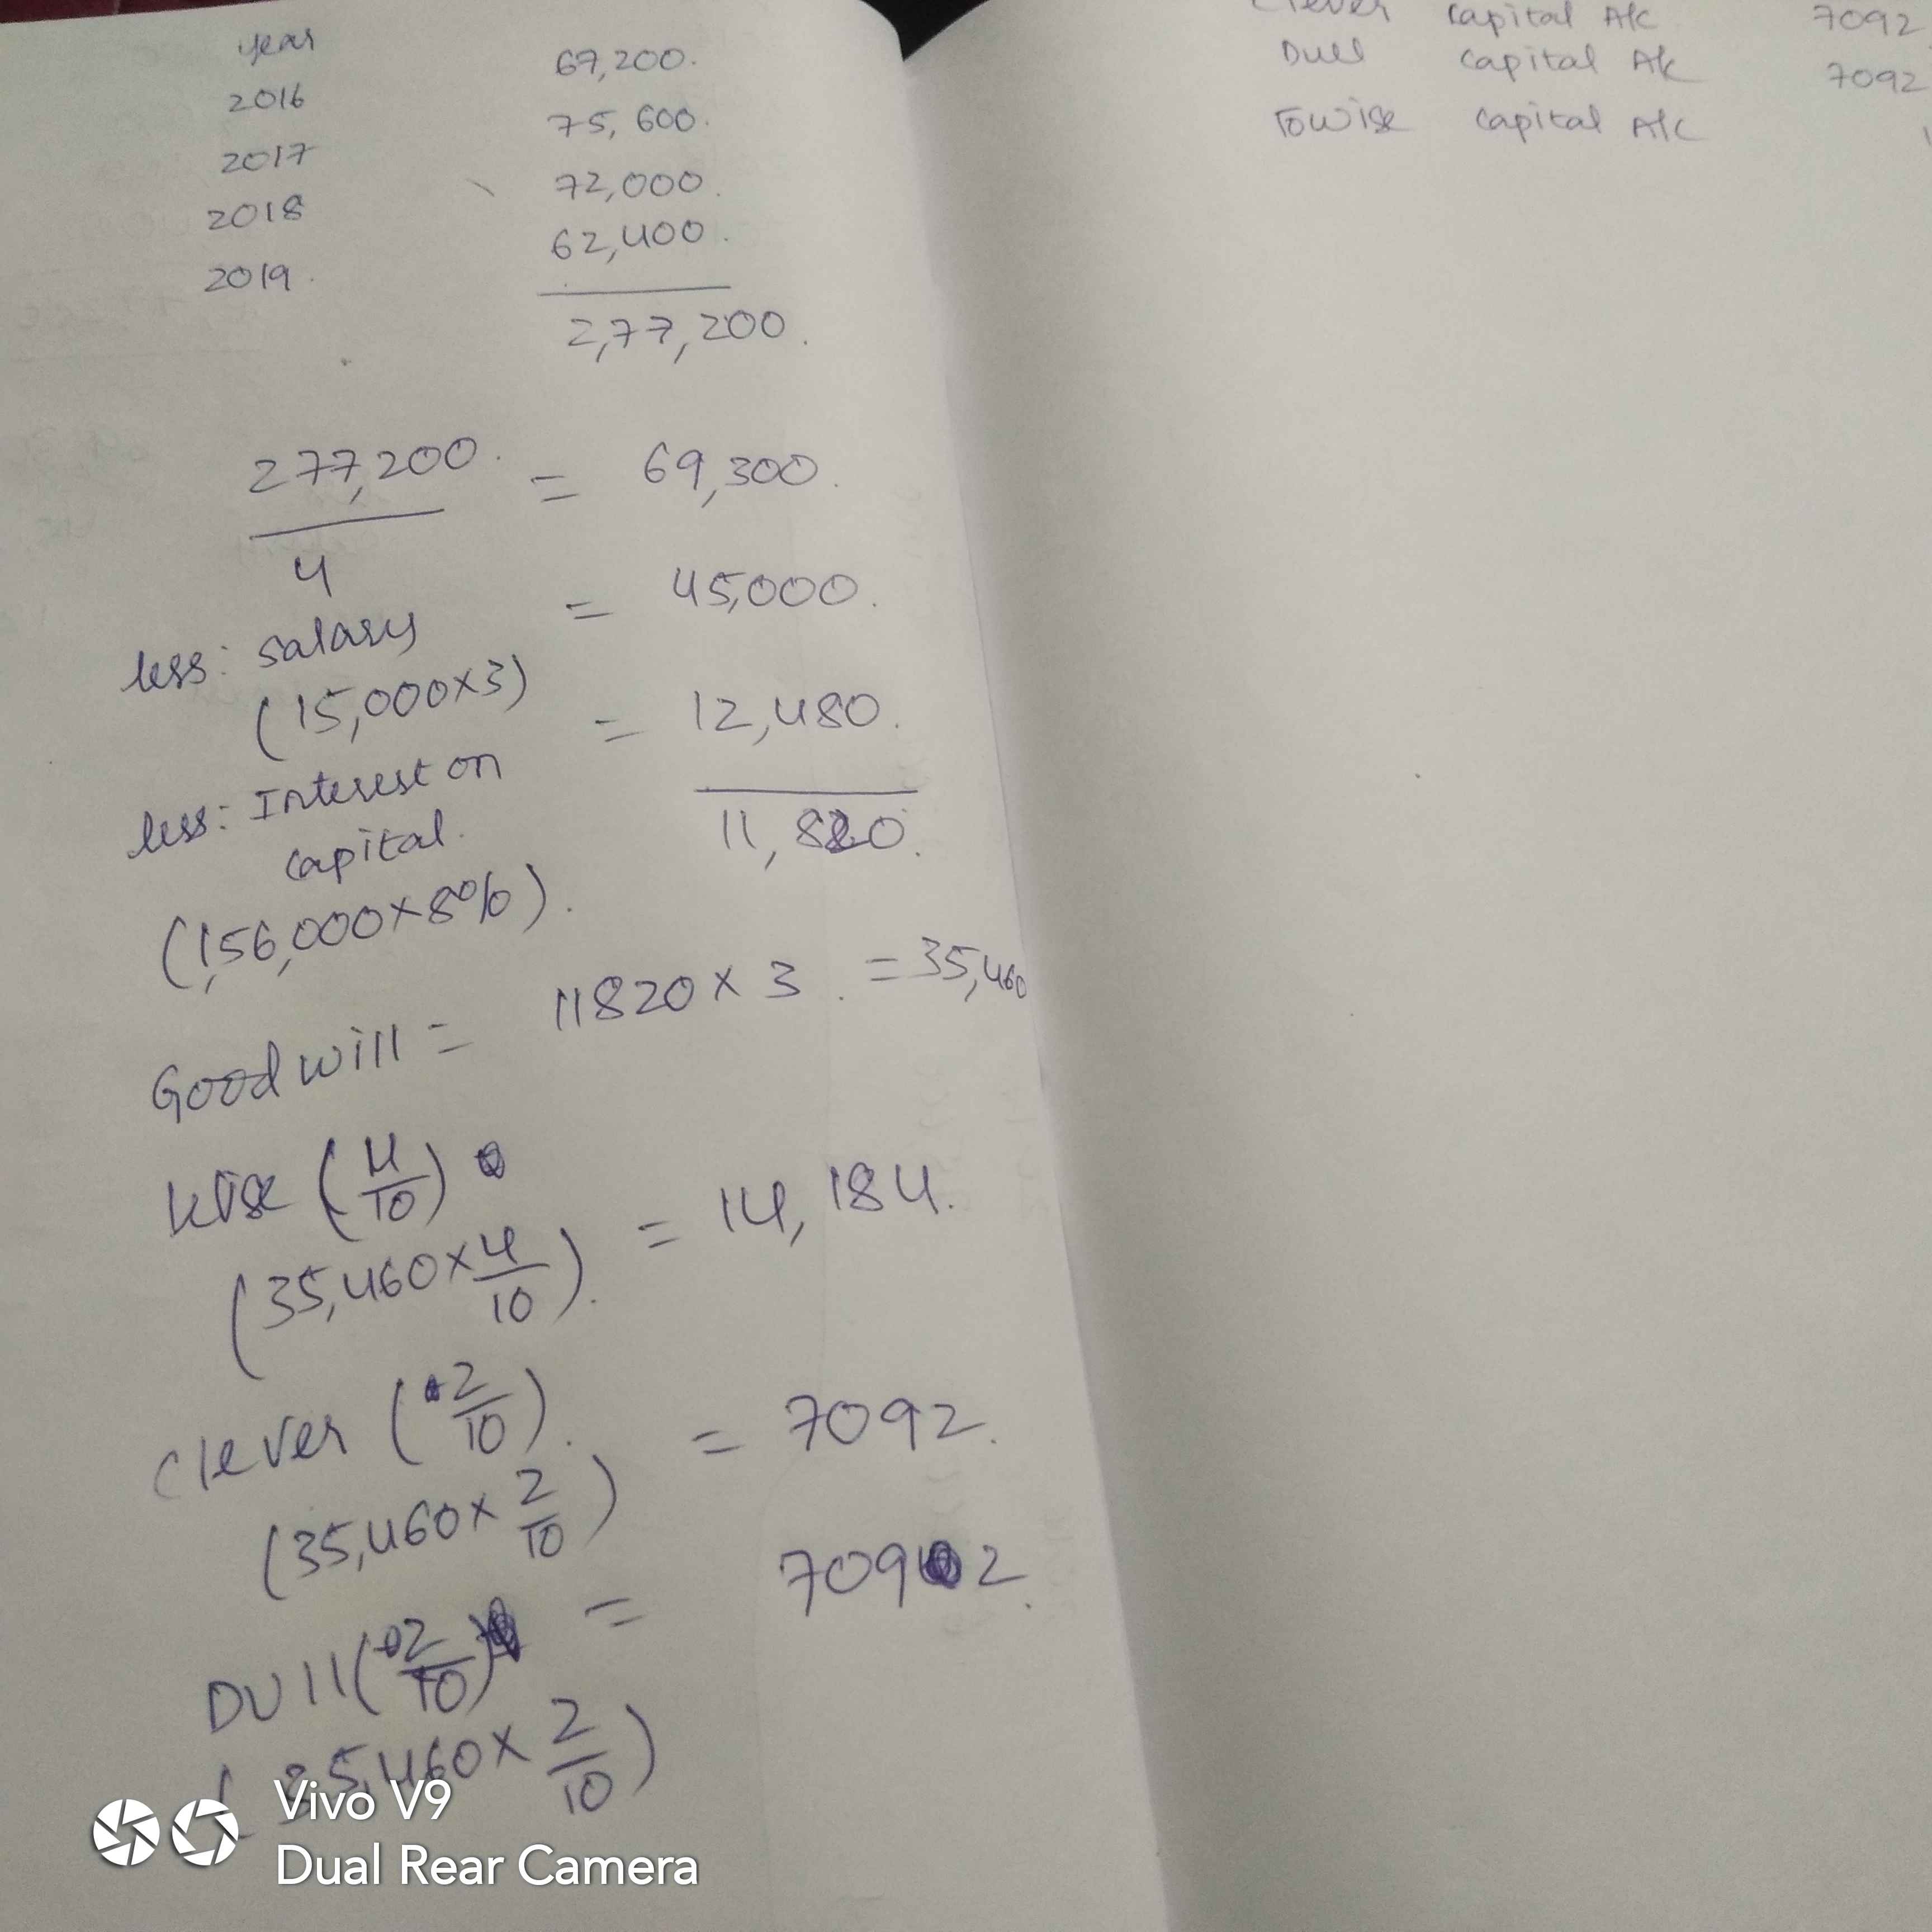 year
67,200.
2016
75,600.
2017
72,000.
2018
62,400.
2019.
2,77,200.
277,200. = 69,300.
4
less: salary = 45,000.
(15,000×3)
less: Interest on = 12,480.
capital.
11,820.
(1,56,000×8%).
Goodwill = 11820×3. = 35,460
Wise (4/10)
(35,460×4/10). = 14,184.
Clever (2/10). = 7092.
(35,460×2/10)
Dull (2/10) = 7092.
(35,460×2/10)
Clever capital A/c 7092
Dull capital A/c 7092
To Wise capital A/c
Vivo V9
Dual Rear Camera